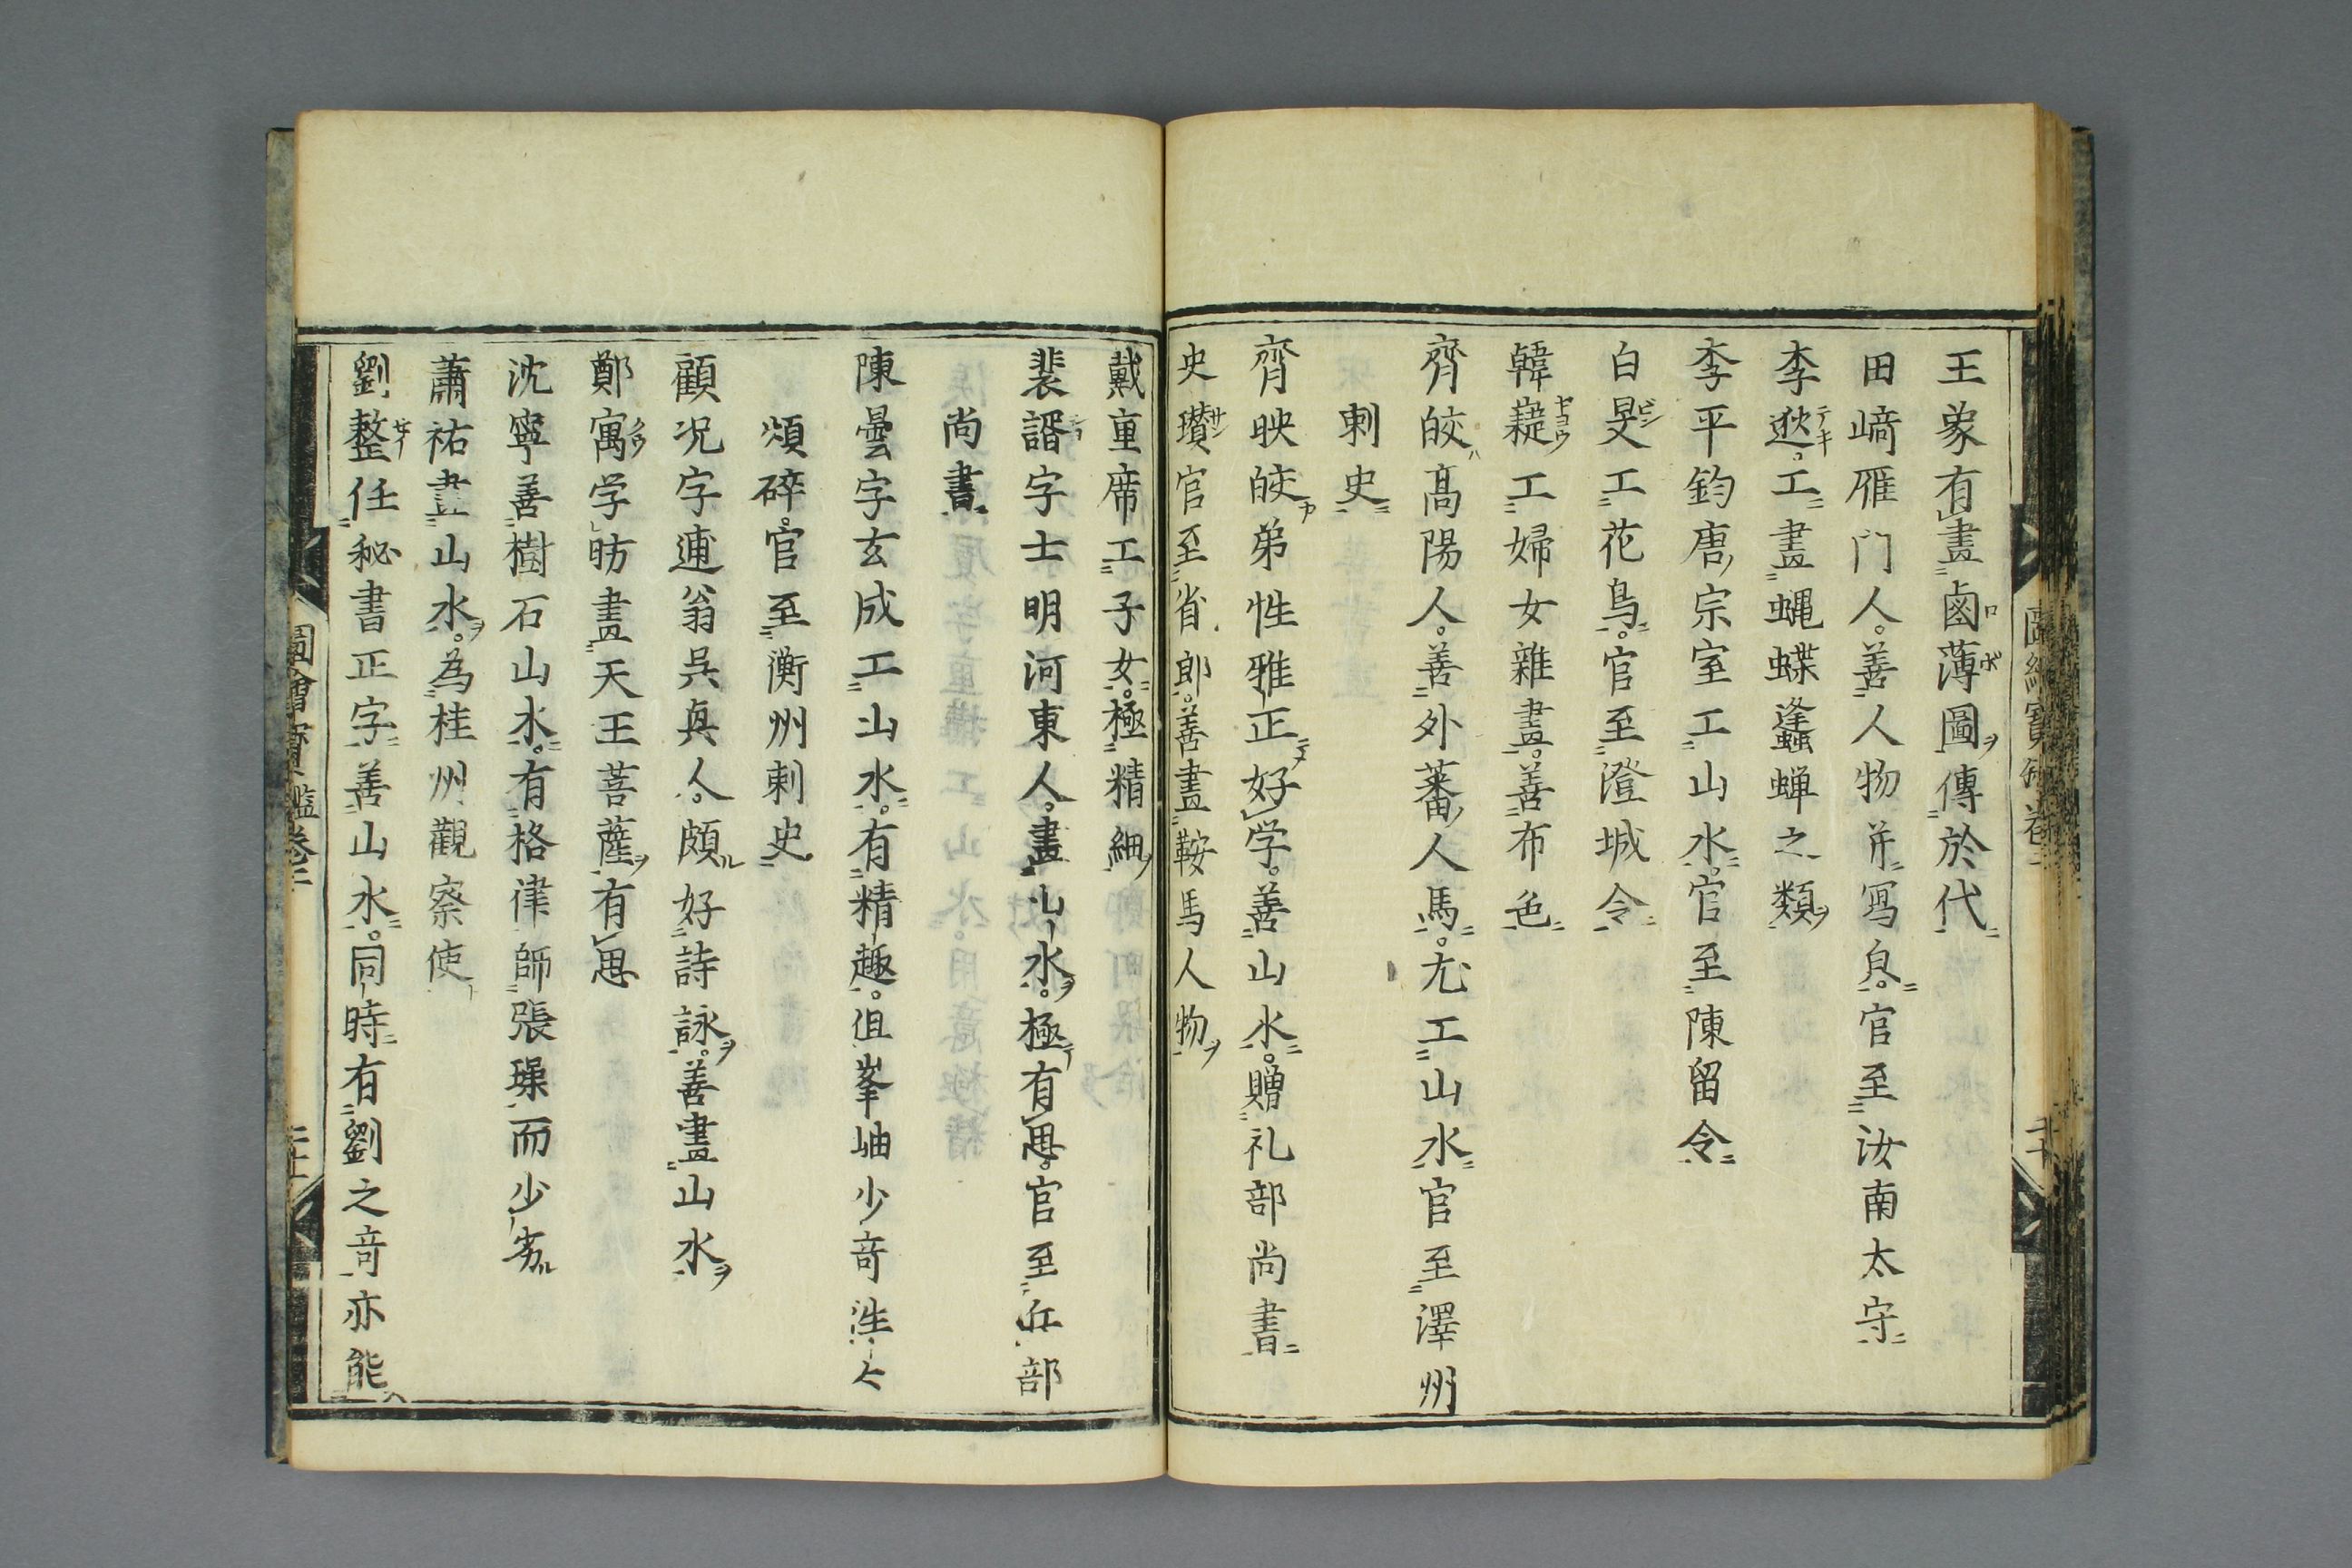 王象有畫鹵薄圖傳於代
田﨑雁门人。善人物并寫㒵。官至汝南太守
李逖。工畫蝿蝶蜂蝉之類
李平鈞唐宗室工山水。官至陳留令
白旻工花鳥。官至澄城令
韓嶷工婦女雜畫。善布色
齊皎髙陽人。善外蕃人馬。尤工山水官至澤州
刺史
齊映皎弟性雅正好学。善山水。贈礼部尚書
史瓚官至省郎。善畫鞍馬人物
戴重席工子女。極精細
裴諝字士明河東人。畫山水。極有思。官至兵部
尚書
陳曇字玄成工山水。有精趣。但峯岫少竒
煩碎。官至衡州刺史
顧况字逋翁呉興人。頗好詩詠。善畫山水
鄭寓学昉畫天王菩薩有思
沈寧善樹石山水。有格律師張璪而少劣
蕭祐畫山水。為桂州觀察使
劉整任秘書正字善山水。同時有劉之竒亦能
圖繪寳鑑卷二